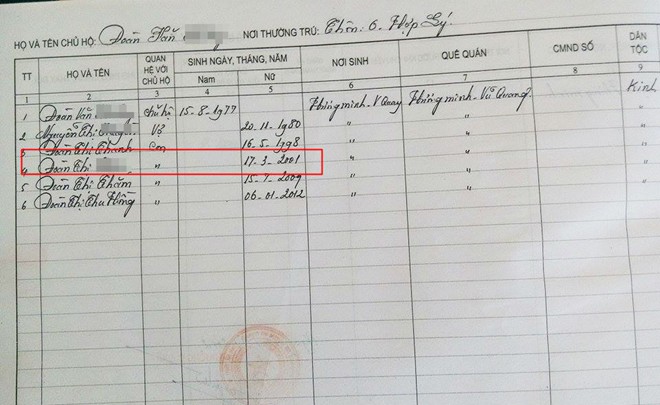 HỌ VÀ TÊN CHỦ HỘ: Đoàn Văn NƠI THƯỜNG TRÚ: Thôn 6. Hợp Lý.
TT HỌ VÀ TÊN QUAN HỆ VỚI CHỦ HỘ SINH NGÀY, THÁNG, NĂM NƠI SINH QUÊ QUÁN CMND SỐ DÂN TỘC
Nam Nữ
1 2 3 4 5 6 7 8 9
1 Đoàn Văn Chủ hộ 15-8-1977 Hưng minh - V Quang Hưng minh - Vũ Quang Kinh
2 Nguyễn Thị Vợ 20-11-1980 " " "
3 Đoàn Thị Thanh Con 16-5-1998 " " "
4 Đoàn Thị " 17-3-2001 " " "
5 Đoàn Thị Thắm " 15-7-2009 " " "
6 Đoàn Thị Thu Hồng " 06-01-2012 " " "